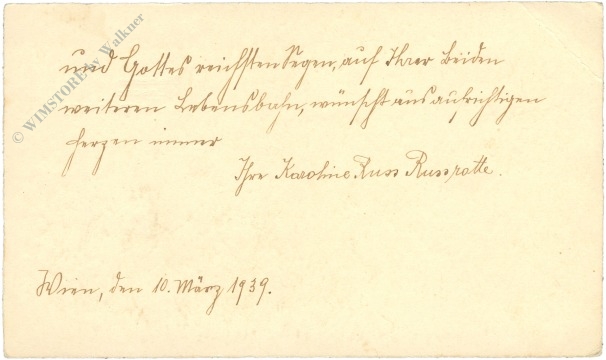 und Gottes reichsten Segen, auf Ihrer beiden
weiteren Lebensbahn, wünscht aus aufrichtigen
Herzen immer
Ihre Karoline Russ
Wien, den 10. März 1939.
© WIMSTORE by Walkner